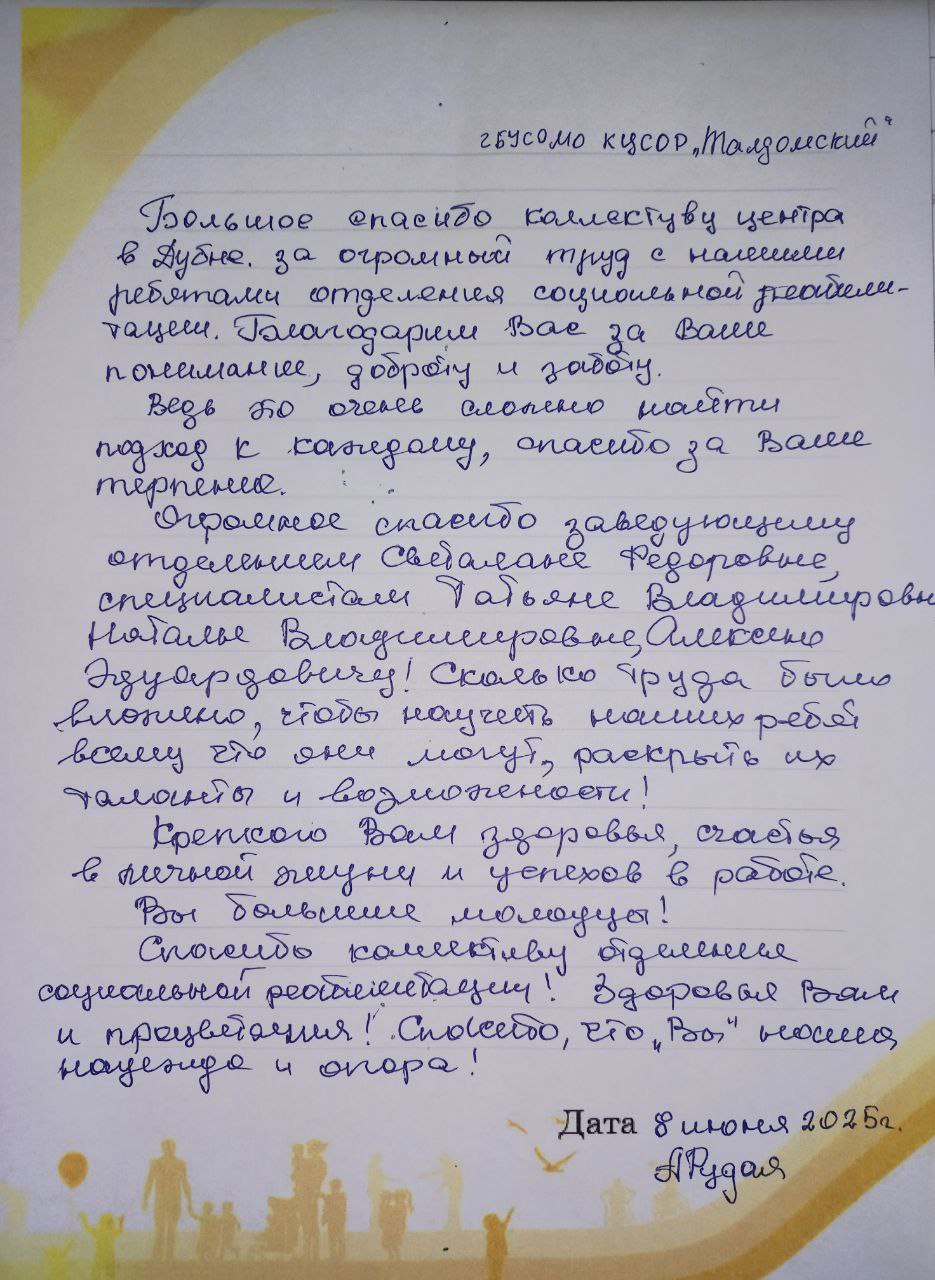 ГБУСОМО КЦСОР „Талдомский“
Большое спасибо коллективу центра
в Дубне. за огромный труд с нашими
ребятами отделения социальной реабили-
тации. Благодарим Вас за Ваше
понимание, доброту и заботу.
Ведь это очень сложно найти
подход к каждому, спасибо за Ваше
терпение.
Огромное спасибо заведующему
отделением Светалане Федоровне,
специалистам Татьяне Владимировн
Наталье Владимировне, Алексею
Эдуардовичу! Сколько труда было
вложено, чтобы научить наших ребят
всему что они могут, раскрыть их
таланты и возможности!
Крепкого Вам здоровья, счастья
в личной жизни и успехов в работе.
Вы большие молодцы!
Спасибо коллективу отделения
социальной реабилитации! Здоровья Вам
и процветания! Спасибо, что „Вы“ наша
надежда и опора!
Дата 8 июня 2025г.
АРудая